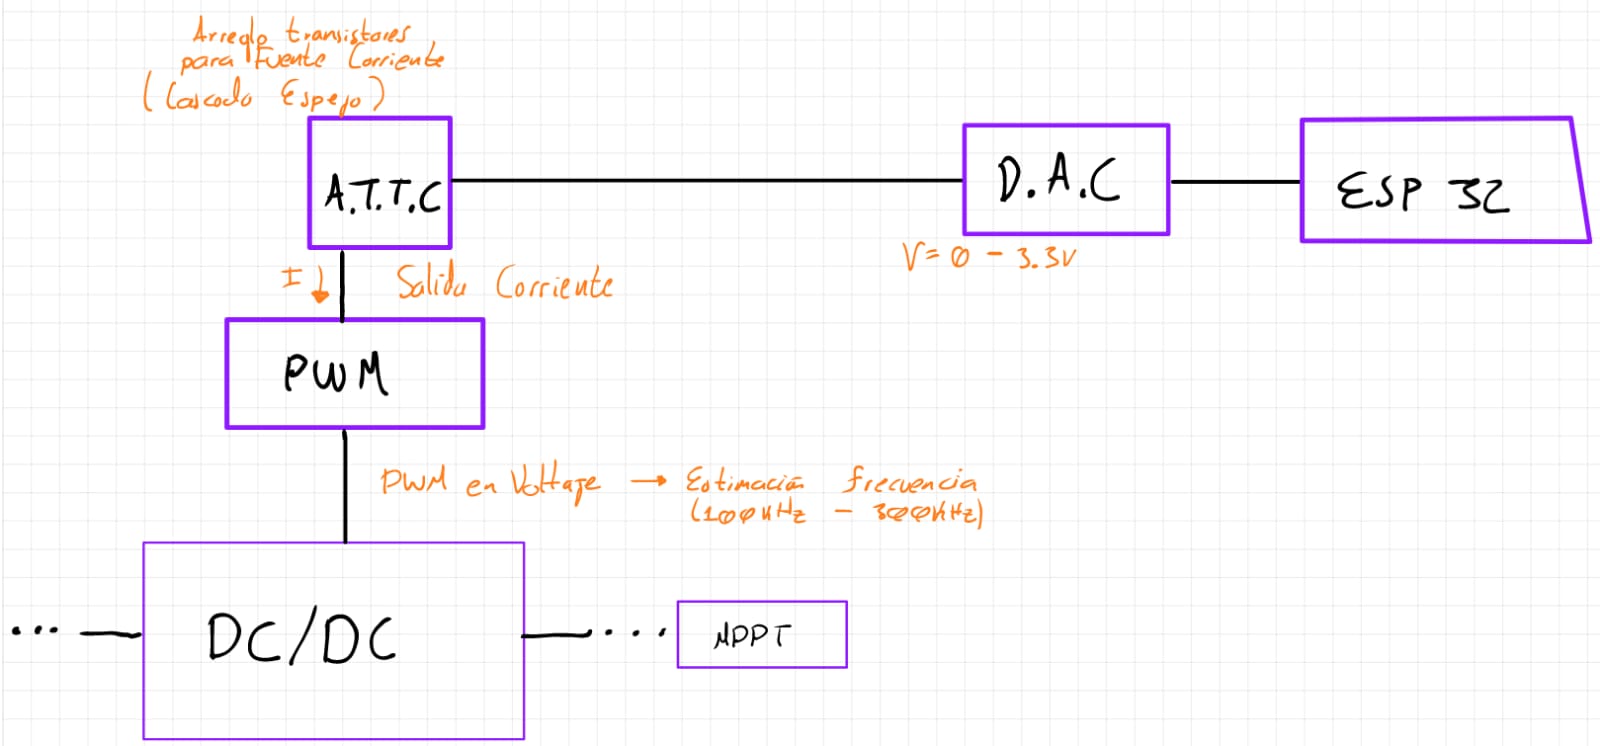 Arreglo transistores
para Fuente Corriente
(Cascodo Espejo)
A.T.T.C
D.A.C
ESP 32
V= 0 - 3.3V
I ↓ Salida Corriente
PWM
PWM en Voltage → Estimación frecuencia
(100kHz - 300kHz)
... — DC/DC — ... MPPT